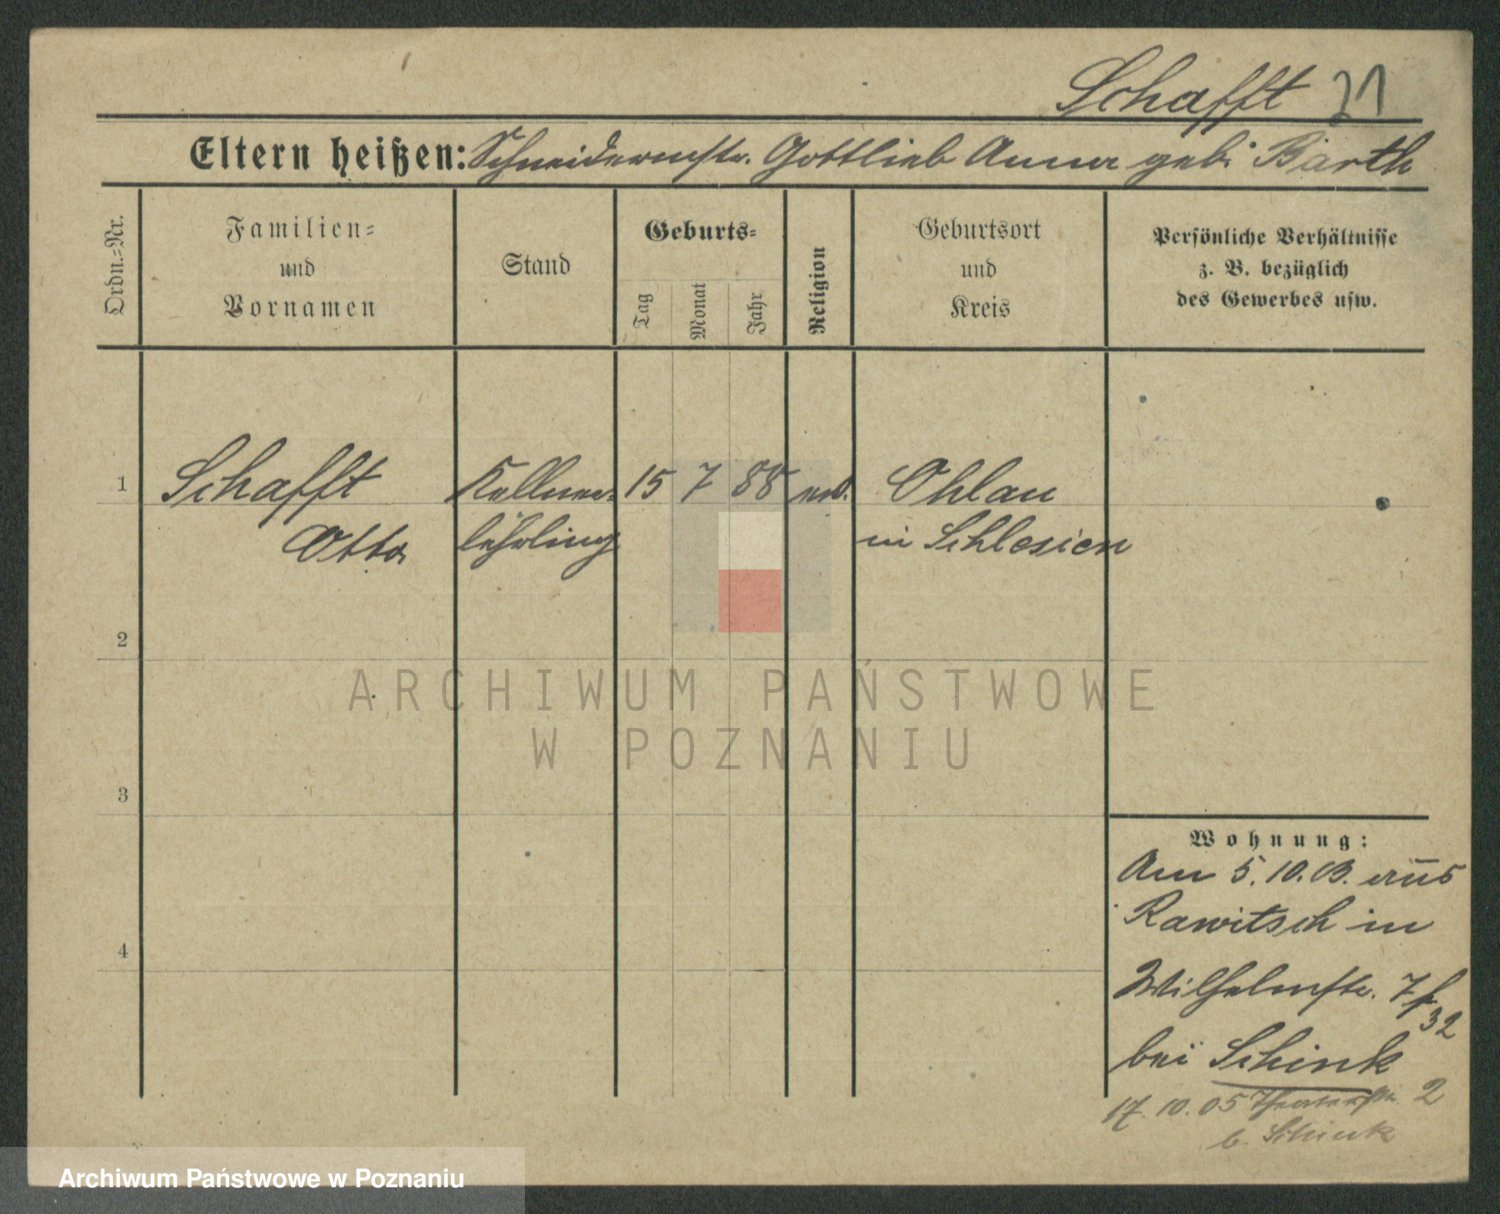 Schafft 21
Eltern heißen: Schneidermstr. Gottlieb Anna geb. Barth
Ordn.-Nr.
Familien-
und
Vornamen
Stand
Geburts-
Tag
Monat
Jahr
Religion
Geburtsort
und
Kreis
Persönliche Verhältnisse
z. B. bezüglich
des Gewerbes usw.
1 Schafft Kellner- 15 7 88 ev. Ohlau
Otto lehrling in Schlesien
2
3
4
ARCHIWUM PAŃSTWOWE
W POZNANIU
Wohnung:
Am 5.10.03. aus
Rawitsch in
Wilhelmstr. 7
32
bei Schink
17.10.05 Theaterstr. 2
b. Schink
Archiwum Państwowe w Poznaniu